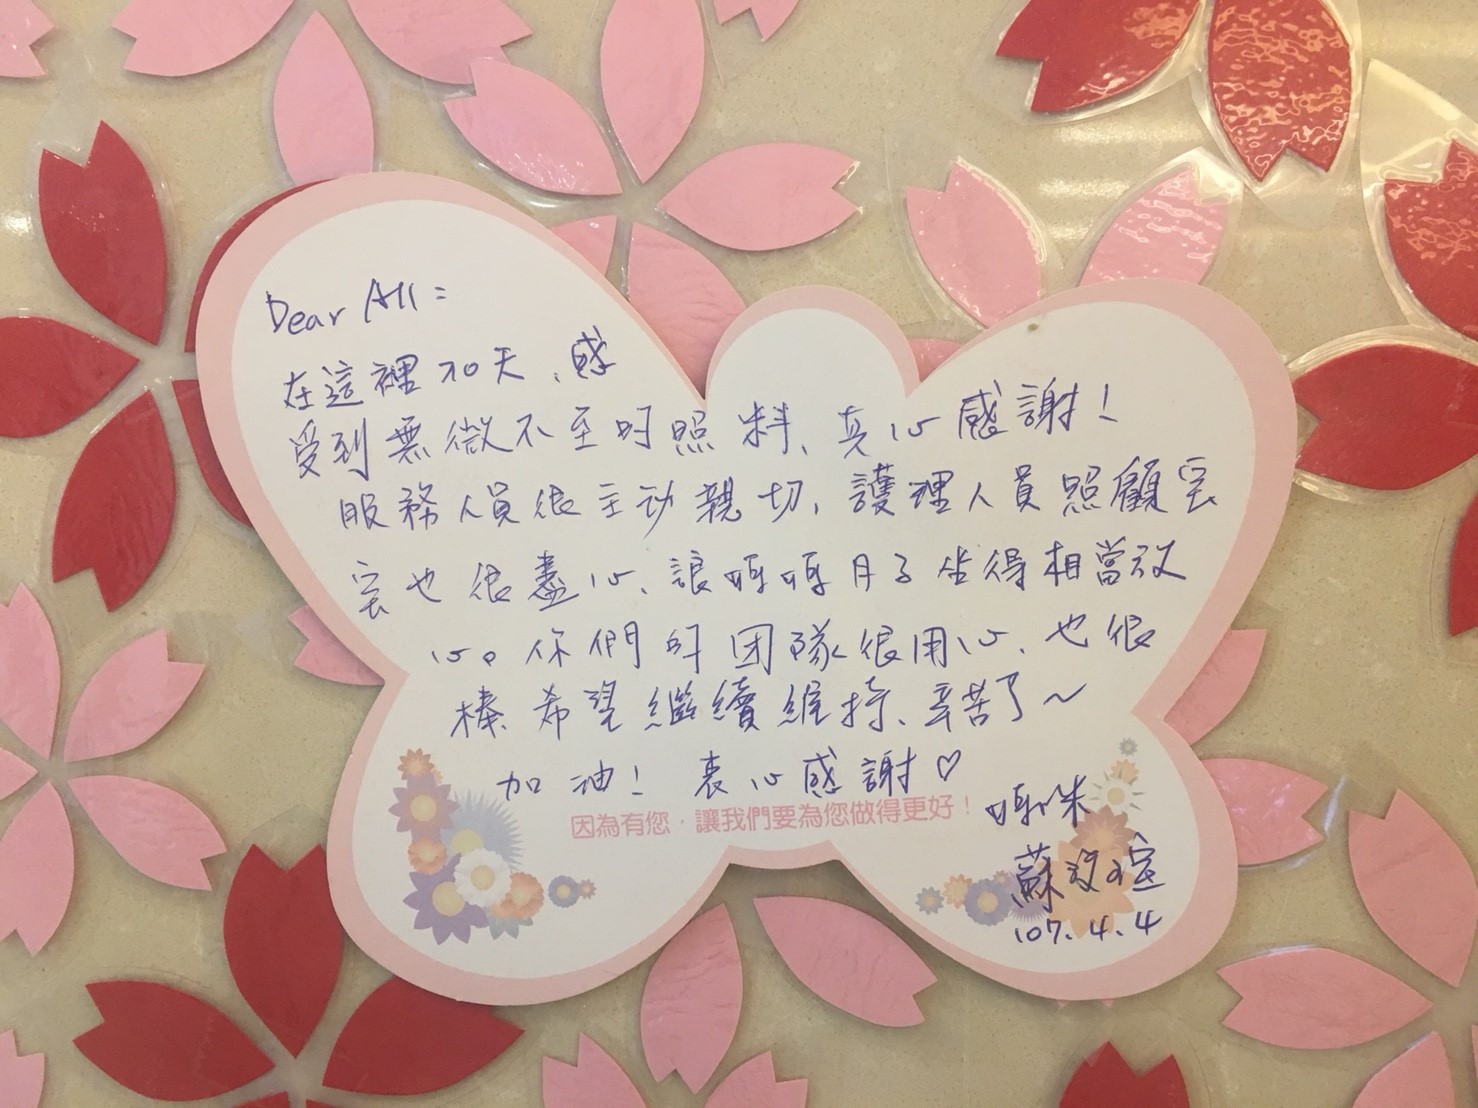 Dear All:
在這裡20天、感
受到無微不至的照料、真心感謝!
服務人員很主动親切,護理人員照顧宝
宝也很盡心、讓媽媽月子坐得相當放
心。你們的团隊很用心、也很
棒、希望繼續維持、辛苦了~
加油! 衷心感謝♡
因為有您,讓我們要為您做得更好!
媽咪
蘇
107.4.4